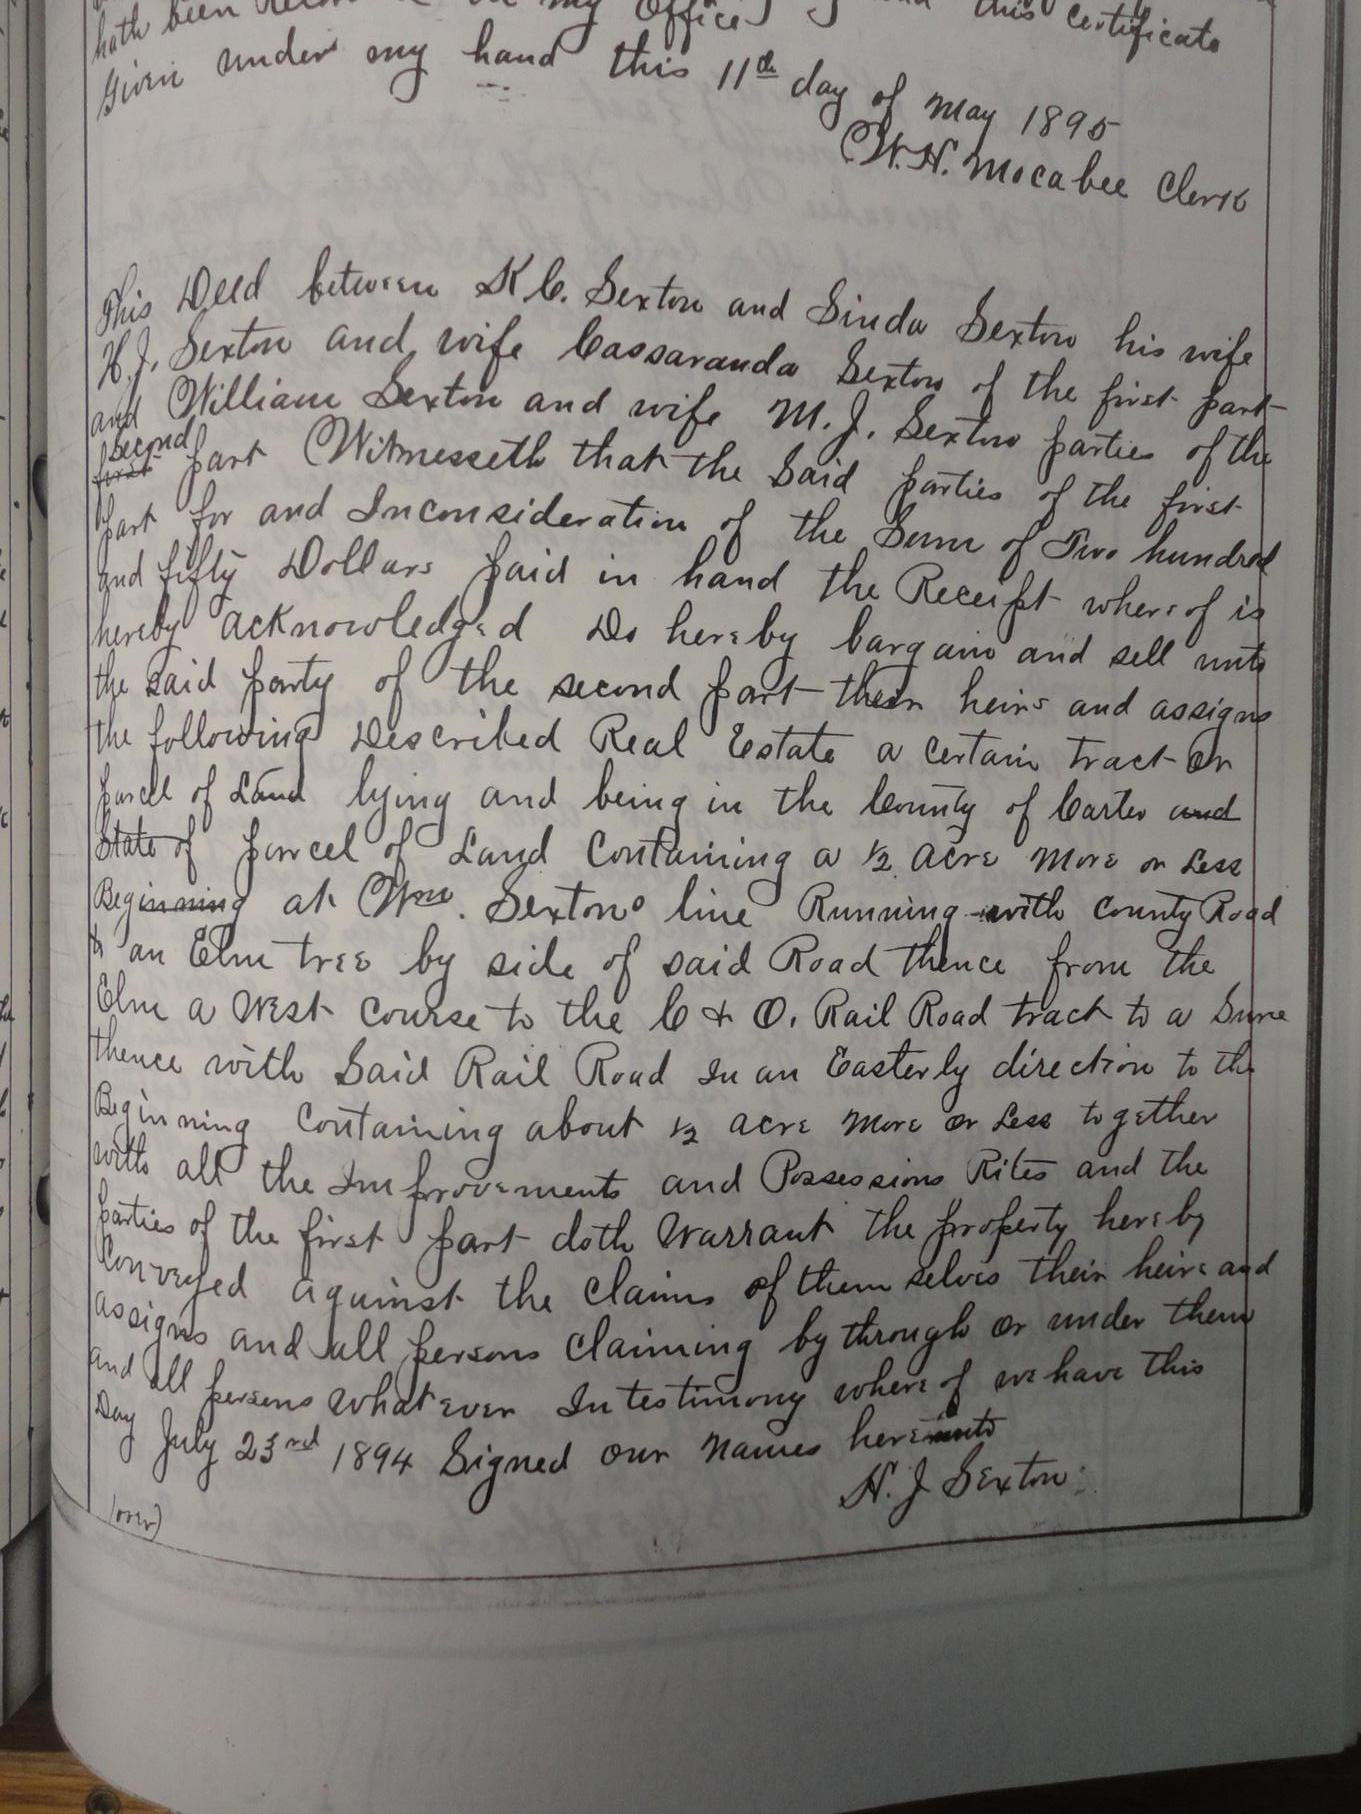 hath been Record in my Office and this certificate
Given under my hand this 11th day of May 1895
W. H. Mocabee Clerk
This Deed between K C. Sexton and Sinda Sexton his wife
H. J. Sexton and wife Cassaranda Sexton of the first part
and William Sexton and wife M. J. Sexton parties of the
second
first part Witnesseth that the Said parties of the first
part for and Inconsideration of the Sum of Two hundred
and fifty Dollars paid in hand the Receipt whereof is
hereby acknowledged Do hereby bargain and sell unto
the said party of the second part their heirs and assigns
the following Described Real Estate a certain tract or
parcel of Land lying and being in the County of Carter and
State of parcel of Land Containing a 1/2 acre more or Less
Beginning at Wm. Sextons line Running with county Road
to an Elm tree by side of said Road thence from the
Elm a West Course to the C & O. Rail Road tract to a
thence with Said Rail Road In an Easterly direction to the
Beginning Containing about 1/2 acre more or Less together
with all the Improvements and Possessions Rites and the
parties of the first part doth Warrant the property hereby
Conveyed against the claims of them selves their heirs and
assigns and all persons claiming by through or under them
and all persons whatever In testimony where of we have this
Day July 23rd 1894 Signed our names hereunto
H. J Sexton
(over)